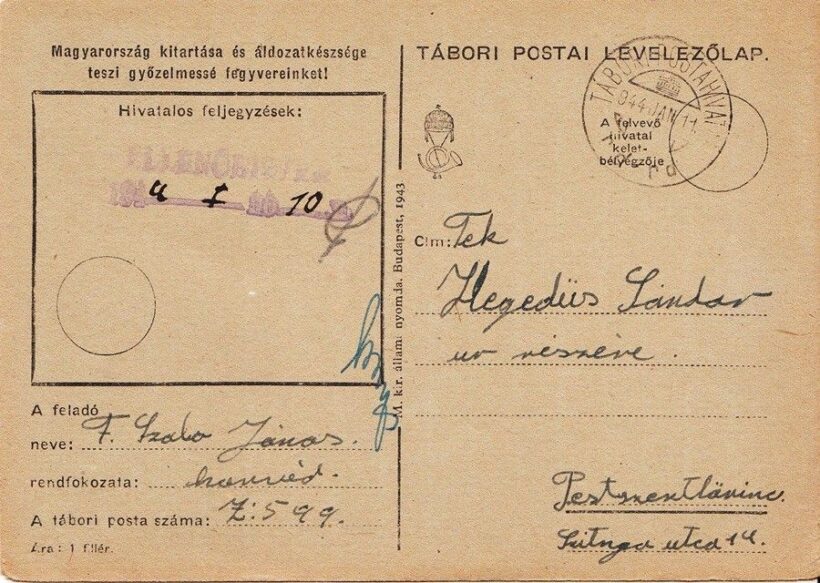 Magyarország kitartása és áldozatkészsége
teszi győzelmessé fegyvereinket!
Hivatalos feljegyzések:
ELLENŐRIZVE
194 4 I 10
A feladó
neve: F. Szabo János.
rendfokozata: honvéd.
A tábori posta száma: Z:599.
Ára: 1 fillér.
M. kir. állami nyomda, Budapest, 1943
TÁBORI POSTAI LEVELEZŐLAP.
TÁBORI POSTAHIVATAL
944 JAN 11
A felvevő
hivatal
kelet-
bélyegzője
Cím: Tek
Hegedüs Sándor
ur részére.
Pestszentlőrinc.
utca 14.